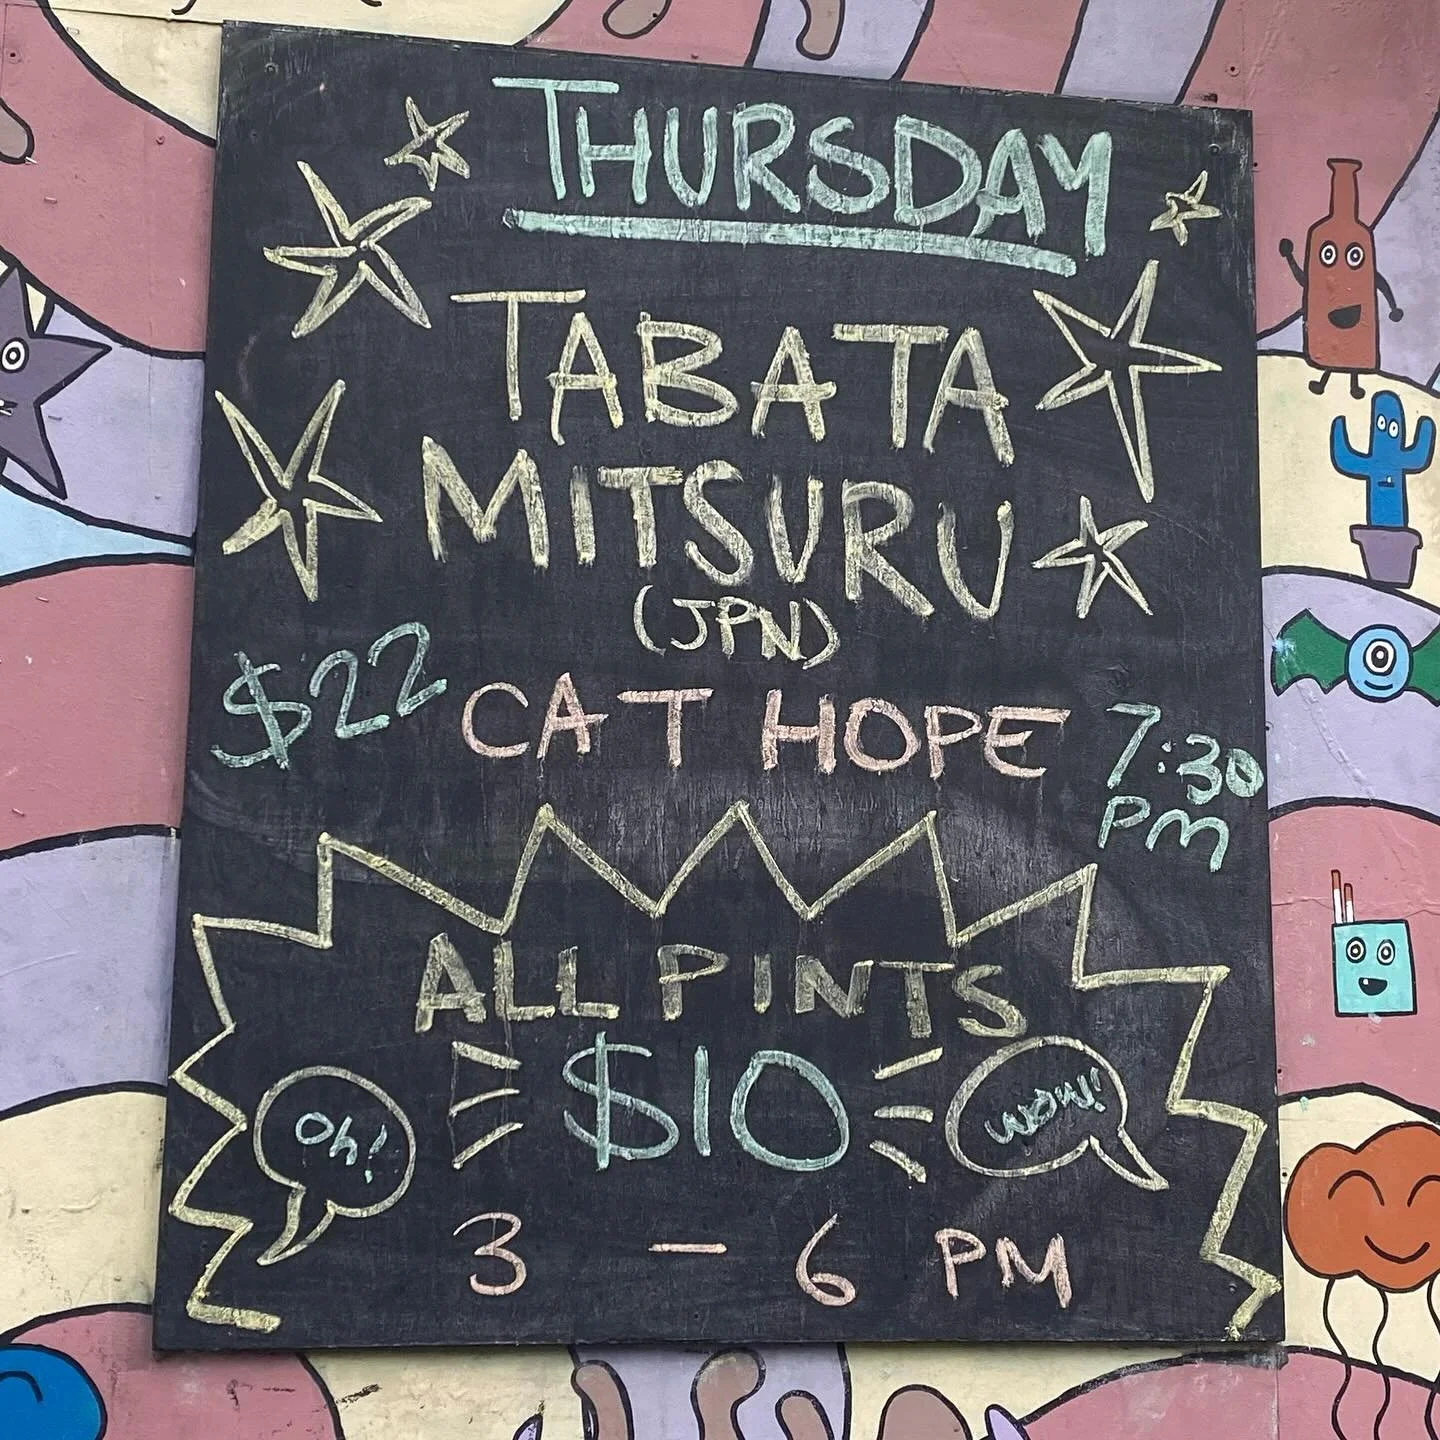 THURSDAY
TABATA
MITSURU
(JPN)
$22
CAT HOPE
7:30
PM
ALL PINTS
$10
Oh!
WOW!
3 - 6 PM